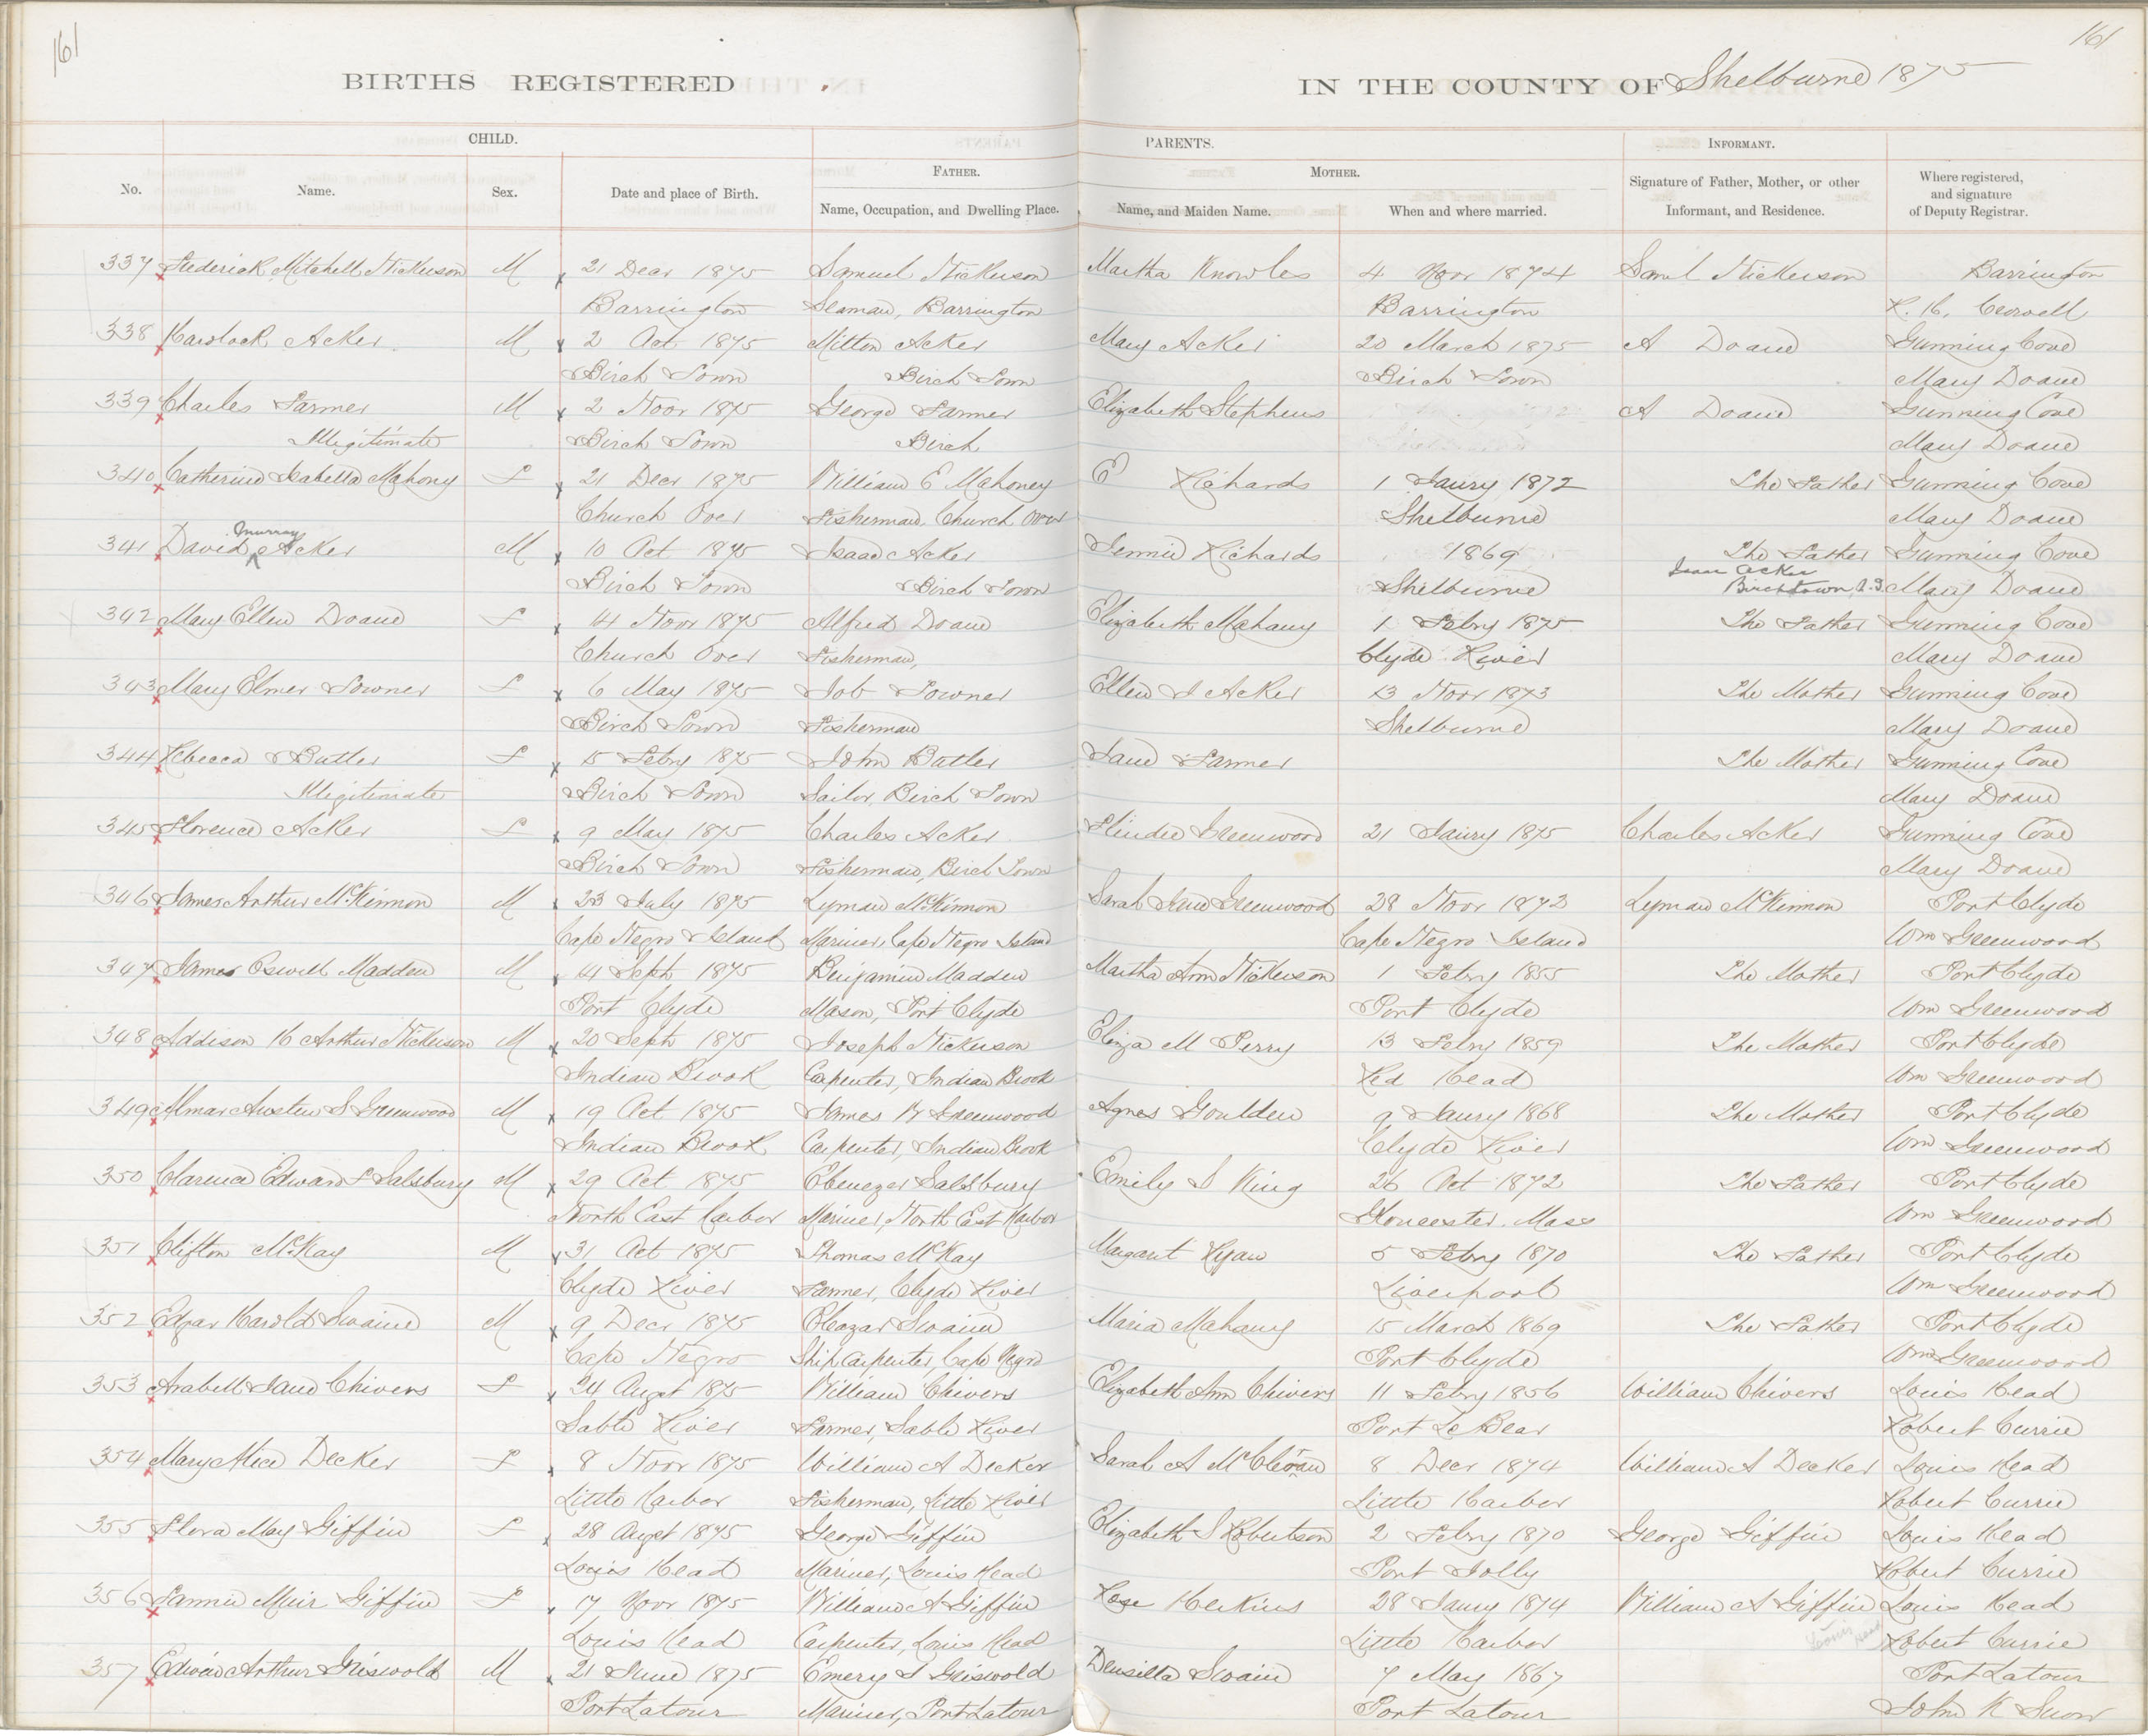 161
161
BIRTHS REGISTERED
IN THE COUNTY OF Shelburne 1875
CHILD.
PARENTS.
INFORMANT.
No.
Name.
Sex.
Date and place of Birth.
FATHER.
Name, Occupation, and Dwelling Place.
MOTHER.
Name, and Maiden Name.
When and where married.
Signature of Father, Mother, or other
Informant, and Residence.
Where registered,
and signature
of Deputy Registrar.
337 Frederick Mitchell Nickerson M 21 Decr 1875 Samuel Nickerson Martha Knowles 4 Novr 1874 Saml Nickerson Barrington
Barrington Seaman, Barrington Barrington Crowell
338 Havelock Acker M 2 Oct 1875 Milton Acker Mary Acker 20 March 1875 A Doane Gunning Cove
Birch Town Birch Town Birch Town Mary Doane
339 Charles Farmer M 2 Novr 1875 George Farmer Elizabeth Stephens A Doane Gunning Cove
Illegitimate Birch Town Birch Mary Doane
340 Catherine Isabella Mahony F 21 Decr 1875 William E Mahoney E Richards 1 Jaury 1872 The Father Gunning Cove
Church Over Fisherman, Church Over Shelburne Mary Doane
Murray
341 David Acker M 10 Oct 1875 Isaac Acker Jennie Richards 1869 The Father Gunning Cove
Isaac Acker
Birch Town Birch Town Shelburne Birchtown, N.S. Mary Doane
342 Mary Ellen Doane F 14 Novr 1875 Alfred Doane Elizabeth Mahany 1 Febry 1875 The Father Gunning Cove
Church Over Fisherman, Clyde River Mary Doane
343 Mary Elmer Towner F 6 May 1875 Job Towner Ellen J Acker 13 Novr 1873 The Mother Gunning Cove
Birch Town Fisherman Shelburne Mary Doane
344 Rebecca Butler F 15 Febry 1875 John Butler Jane Farmer The Mother Gunning Cove
Illegitimate Birch Town Sailor, Birch Town Mary Doane
345 Florence Acker F 9 May 1875 Charles Acker Greenwood 21 Jaury 1875 Charles Acker Gunning Cove
Birch Town Fisherman, Birch Town Mary Doane
346 James Arthur McKinnon M 23 July 1875 Lyman McKinnon Sarah Jane Greenwood 28 Novr 1872 Lyman McKinnon Port Clyde
Cape Negro Island Mariner, Cape Negro Island Cape Negro Island Wm Greenwood
347 James Oswell Madden M 14 Sept 1875 Benjamin Madden Martha Ann Nickerson 1 Febry 1855 The Mother Port Clyde
Port Clyde Mason, Port Clyde Port Clyde Wm Greenwood
348 Addison H Arthur Nickerson M 20 Sept 1875 Joseph Nickerson Eliza M Perry 13 Febry 1859 The Mother Port Clyde
Indian Brook Carpenter, Indian Brook Red Head Wm Greenwood
349 Almar Austen S Greenwood M 19 Oct 1875 James W Greenwood Agnes Goulden 9 Jaury 1868 The Mother Port Clyde
Indian Brook Carpenter, Indian Brook Clyde River Wm Greenwood
350 Clarence Edward F Salsbury M 29 Oct 1875 Ebenezer Salsbury Emily S King 26 Oct 1872 The Father Port Clyde
North East Harbor Mariner, North East Harbor Gloucester, Mass Wm Greenwood
351 Clifton McKay M 31 Oct 1875 Thomas McKay Margaret Ryan 5 Febry 1870 The Father Port Clyde
Clyde River Farmer, Clyde River Liverpool Wm Greenwood
352 Edgar Harold Swaine M 9 Decr 1875 Eleazar Swaine Maria Mahany 15 March 1869 The Father Port Clyde
Cape Negro Ship Carpenter, Cape Negro Port Clyde Wm Greenwood
353 Arabell Jane Chivers F 24 Augst 1875 William Chivers Elizabeth Ann Chivers 11 Febry 1856 William Chivers Louis Head
Sable River Farmer, Sable River Port Le Bear Robert Currie
354 Mary Alice Decker F 8 Novr 1875 William A Decker Sarah A 8 Decr 1874 William A Decker Louis Head
Little Harbor Fisherman, Little River Little Harbor Robert Currie
355 Flora May Giffin F 28 Augst 1875 George Giffin Elizabeth S Robertson 2 Febry 1870 George Giffin Louis Head
Louis Head Mariner, Louis Head Port Jolly Robert Currie
356 Fannie Muir Giffin F 17 Novr 1875 William A Giffin Rose Herkins 28 Jaury 1874 William A Giffin Louis Head
Louis Head Carpenter, Louis Head Little Harbor Louis Head Robert Currie
357 Edwin Arthur Griswold M 21 June 1875 Emery S Griswold Drusilla Swain 7 May 1867 Port Latour
Port Latour Mariner, Port Latour Port Latour John K Snow